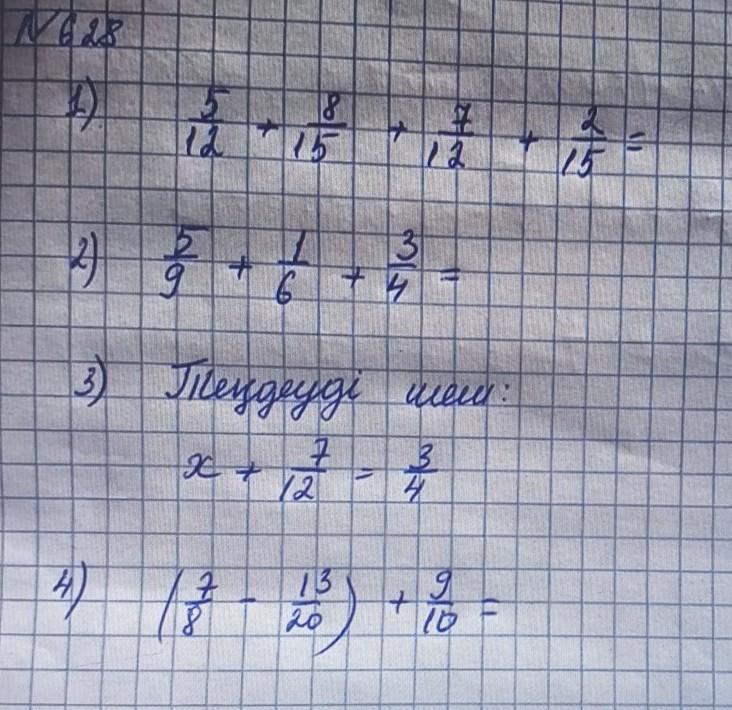 №628
1) 5/12 + 8/15 + 7/12 + 2/15 =
2) 5/9 + 1/6 + 3/4 =
3) Теңдеуді шеш:
x + 7/12 = 3/4
4) (7/8 - 13/20) + 9/10 =